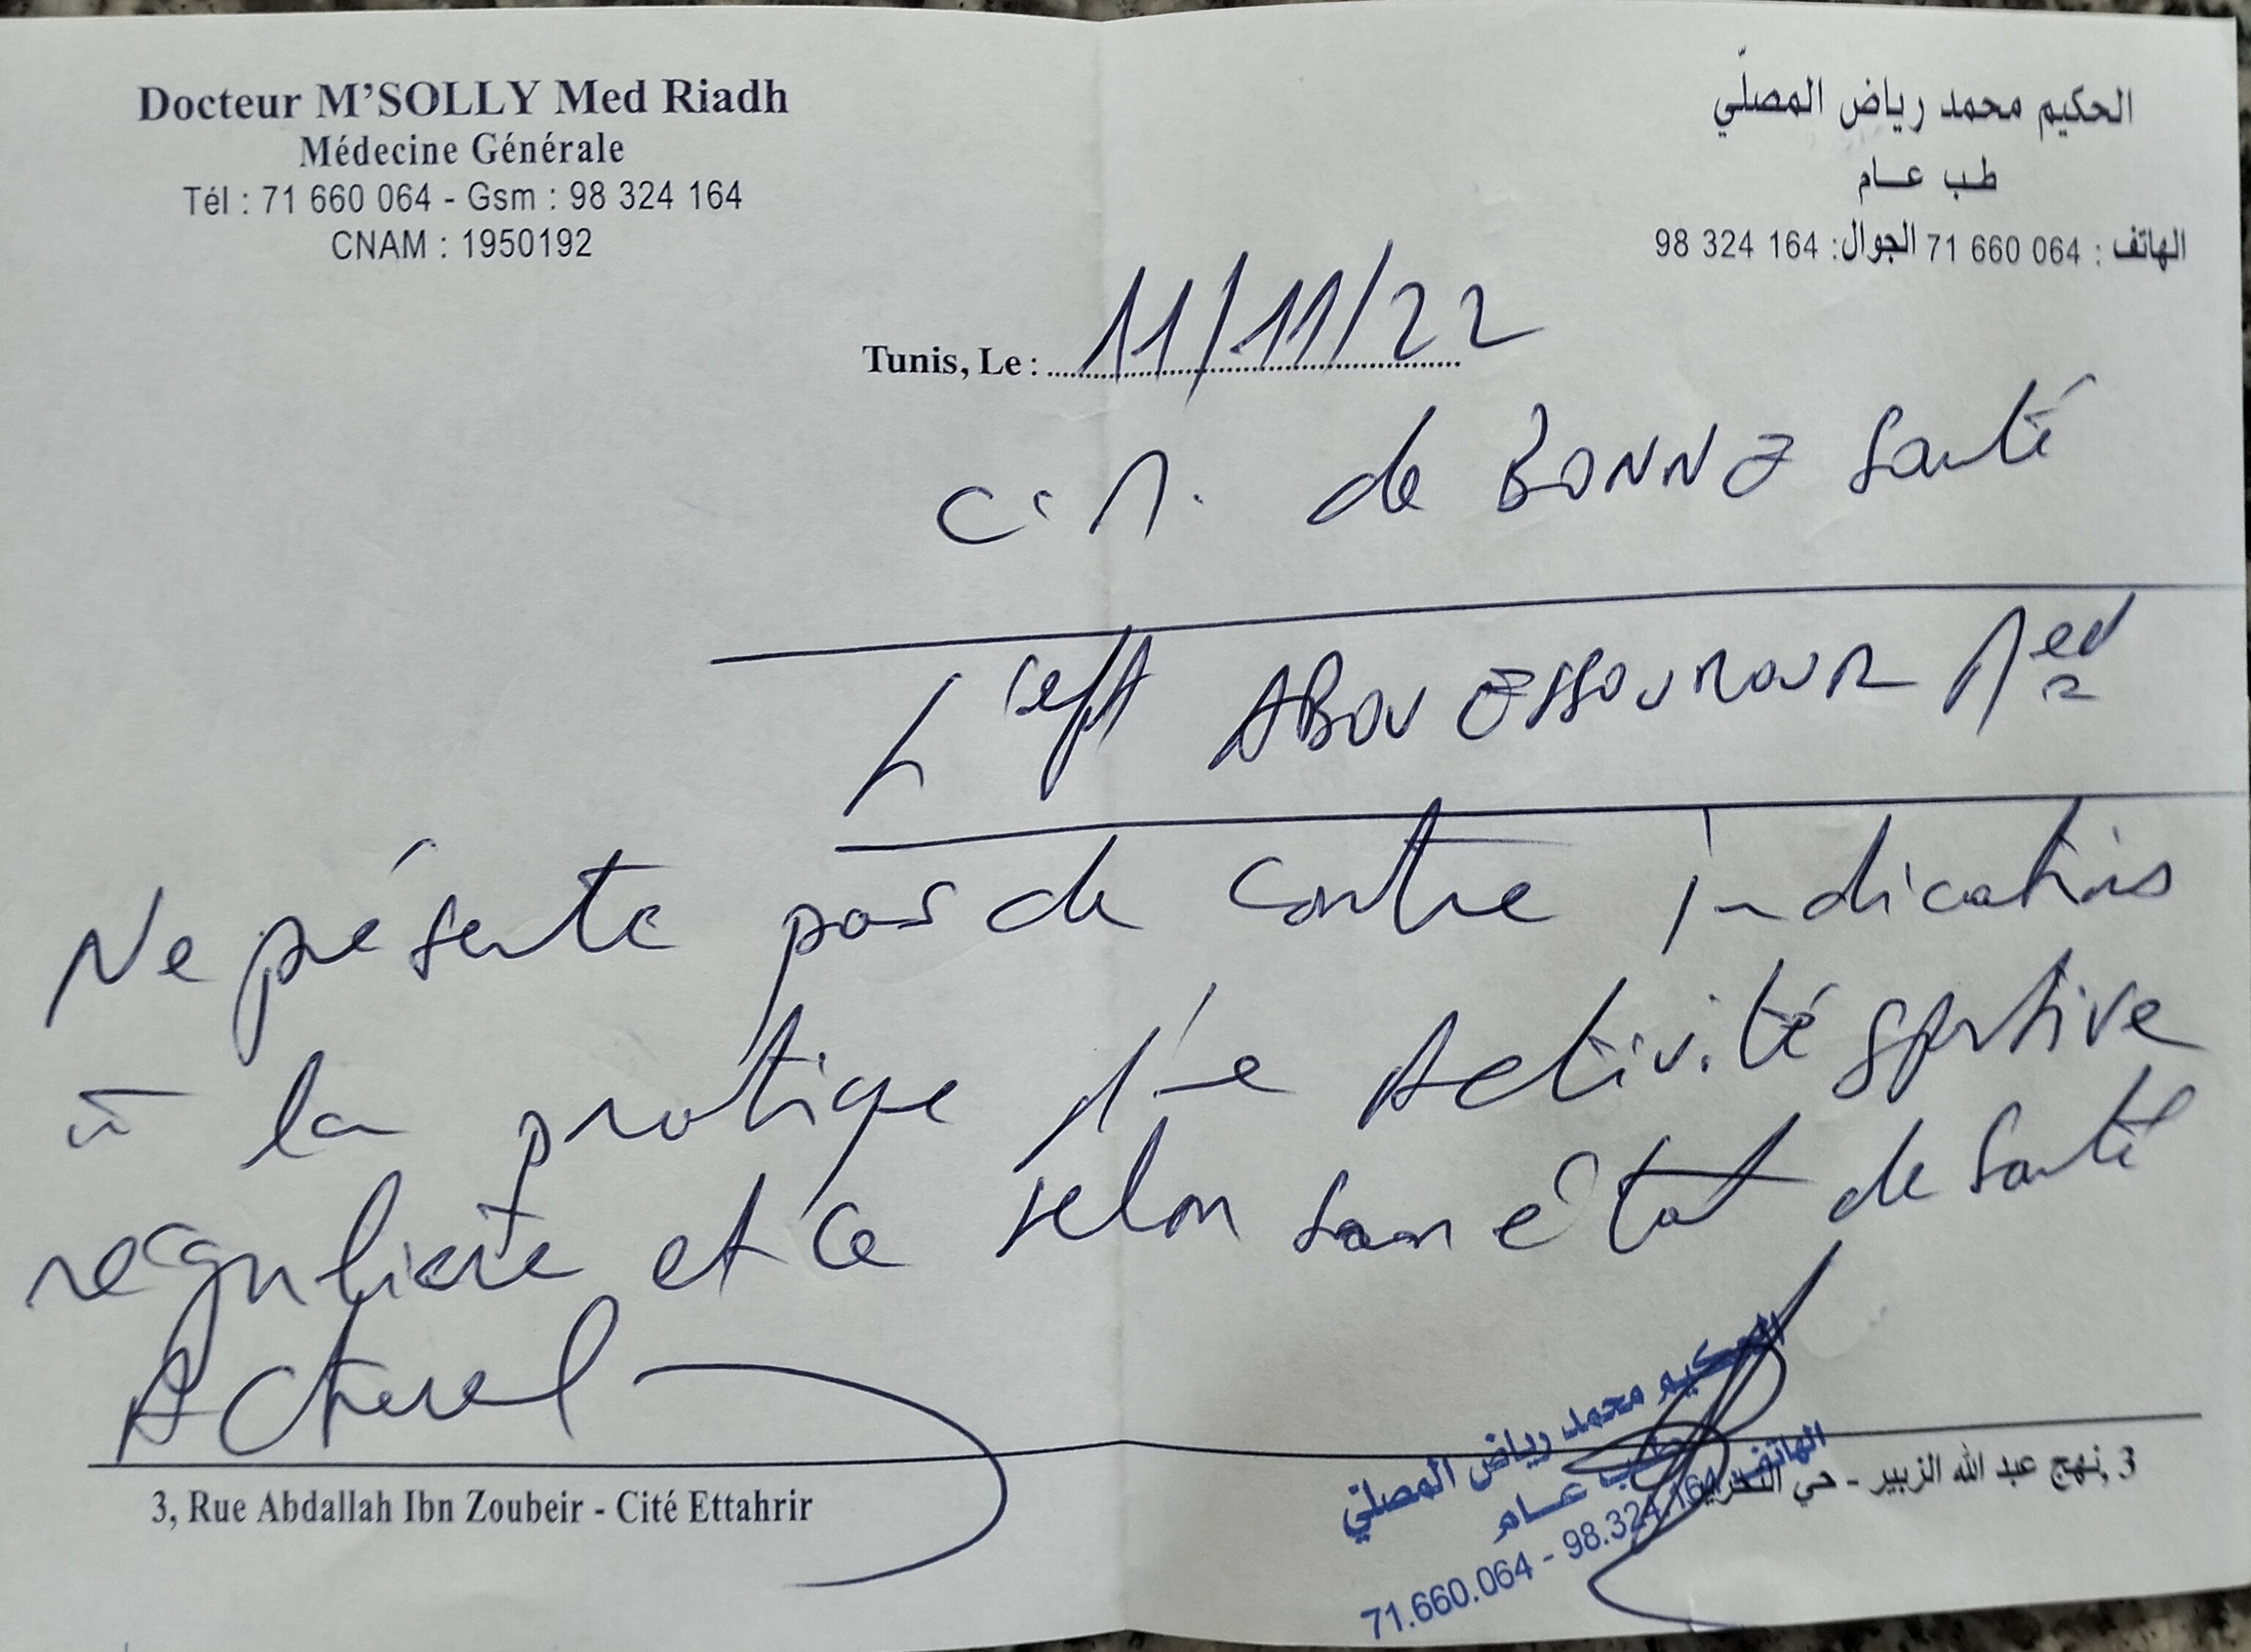 Docteur M'SOLLY Med Riadh
Médecine Générale
Tél : 71 660 064 - Gsm : 98 324 164
CNAM : 1950192
الحكيم محمد رياض المصلّي
طب عـام
الهاتف : 064 660 71 الجوال: 164 324 98
Tunis, Le : 11/11/22
C. M. de BONNE Santé
ABOU ESSOUROUR Med
Ne présente pas de contre indications
à la pratique d'une Activité sportive
régulière et ce selon son état de santé
Actuel
3, Rue Abdallah Ibn Zoubeir - Cité Ettahrir
3, نهج عبد الله الزبير - حي التحرير
الحكيم محمد رياض المصلّي
طب عـام
الهاتف: 71.660.064 - 98.324.164